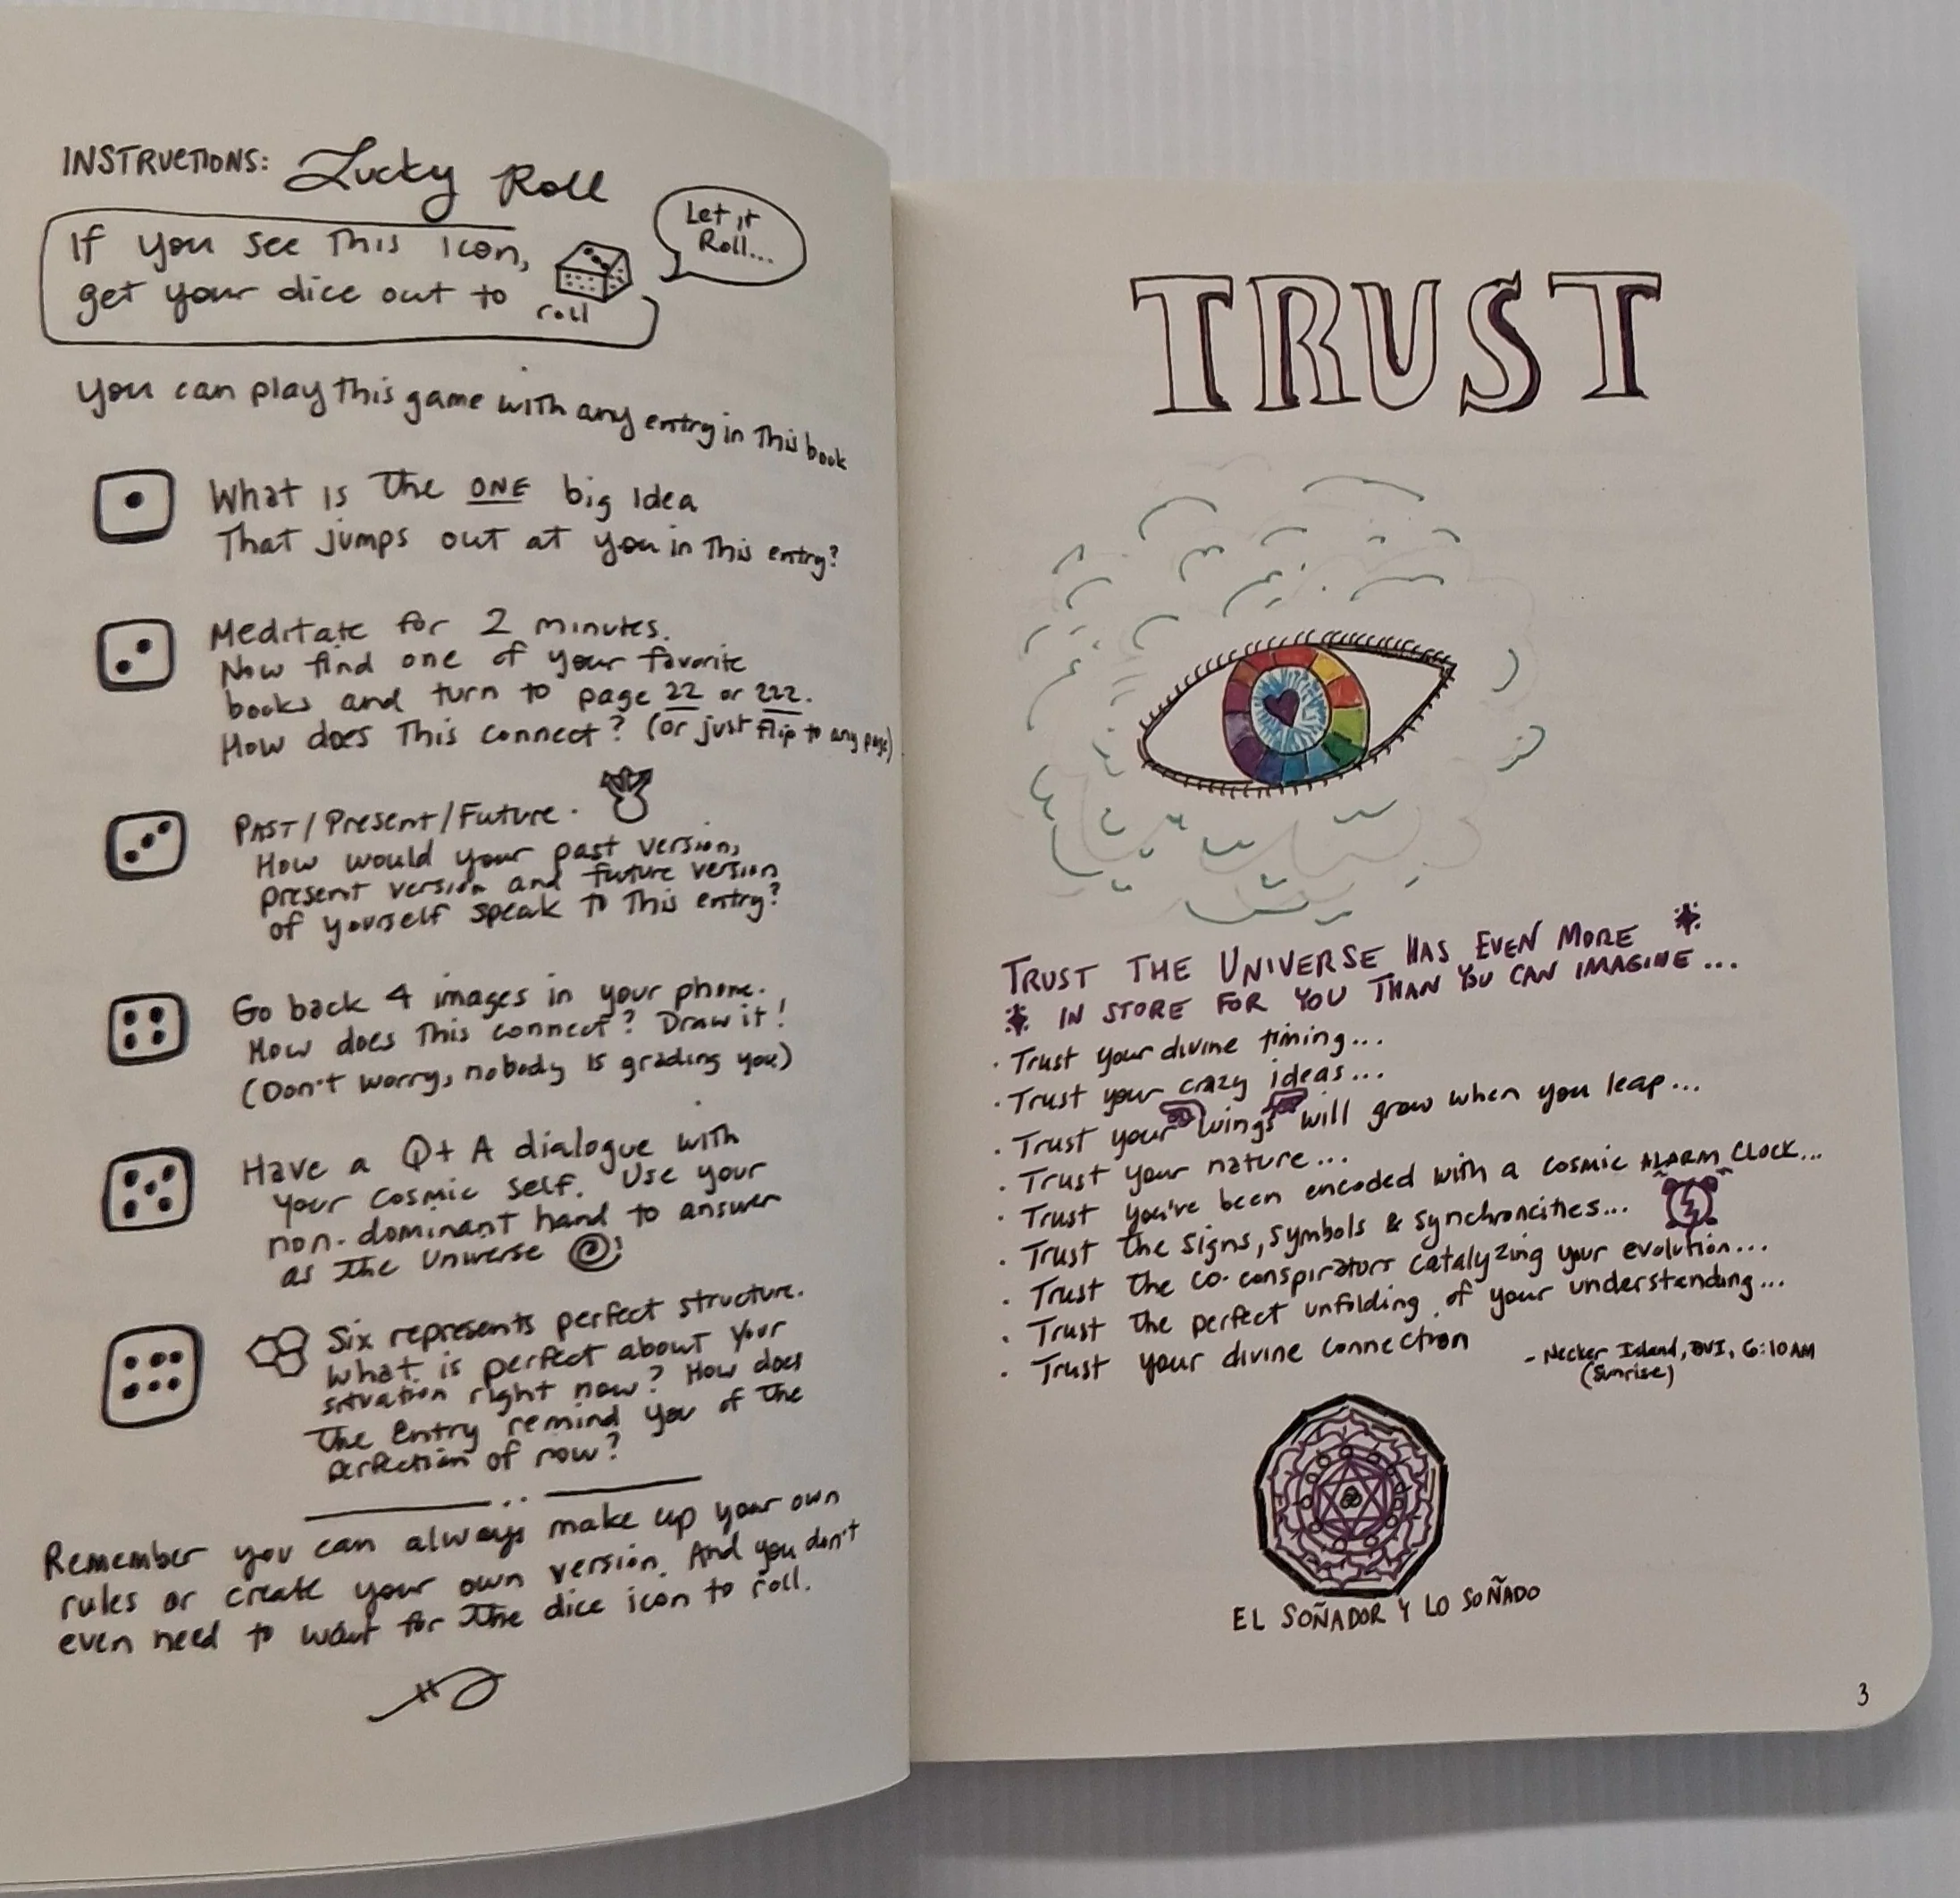 INSTRUCTIONS: Lucky Roll
If you see This icon,
get your dice out to roll
Let it
Roll...
you can play This game with any entry in This book
What is The ONE big idea
That jumps out at you in This entry?
Meditate for 2 minutes.
Now find one of your favorite
books and turn to page 22 or 222.
How does This connect? (or just flip to any page)
Past/Present/Future.
How would your past version,
present version and future version
of yourself speak to This entry?
Go back 4 images in your phone.
How does This connect? Draw it!
(Don't worry, nobody is grading you)
Have a Q+A dialogue with
your cosmic self. Use your
non-dominant hand to answer
as The Universe
Six represents perfect structure.
What is perfect about your
situation right now? How does
The Entry remind you of The
perfection of now?
Remember you can always make up your own
rules or create your own version. And you don't
even need to wait for The dice icon to roll.
TRUST
TRUST THE UNIVERSE HAS EVEN MORE
IN STORE FOR YOU THAN YOU CAN IMAGINE...
· Trust your divine timing...
· Trust your crazy ideas...
· Trust your wings will grow when you leap...
· Trust your nature...
· Trust you've been encoded with a cosmic ALARM CLOCK...
· Trust the signs, symbols & synchroncities...
· Trust the co-conspirators catalyzing your evolution...
· Trust the perfect unfolding of your understanding...
· Trust your divine connection
- Necker Island, BVI, 6:10AM
(Sunrise)
EL SOÑADOR Y LO SOÑADO
3